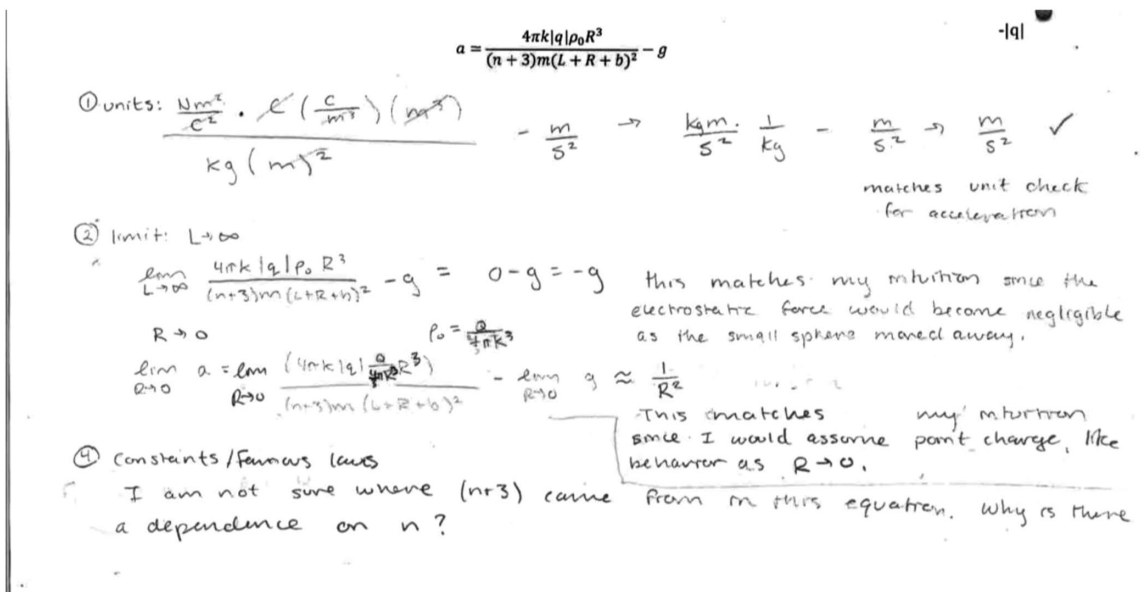 a = 4πk|q|ρ₀R³ / (n + 3)m(L + R + b)² − g
-|q|
① units: Nm²/C² · C (C/m³) (m³) / kg (m)² - m/s² → kgm/s² · 1/kg - m/s² → m/s² ✓
matches unit check
for acceleration
② limit: L→∞
lim L→∞ 4πk|q|ρ₀R³ / (n+3)m(L+R+b)² - g = 0-g = -g
this matches my intuition since the
electrostatic force would become negligible
as the small sphere moved away.
R→0
lim R→0 a = lim R→0 (4πk|q| R³) / (n+3)m (L+R+b)² - lim R→0 g ≈ 1/R²
This matches my intuition
since I would assume point charge, like
behavior as R→0.
④ constaints/famous laws
I am not sure where (n+3) came from in this equation. Why is there
a dependence on n?